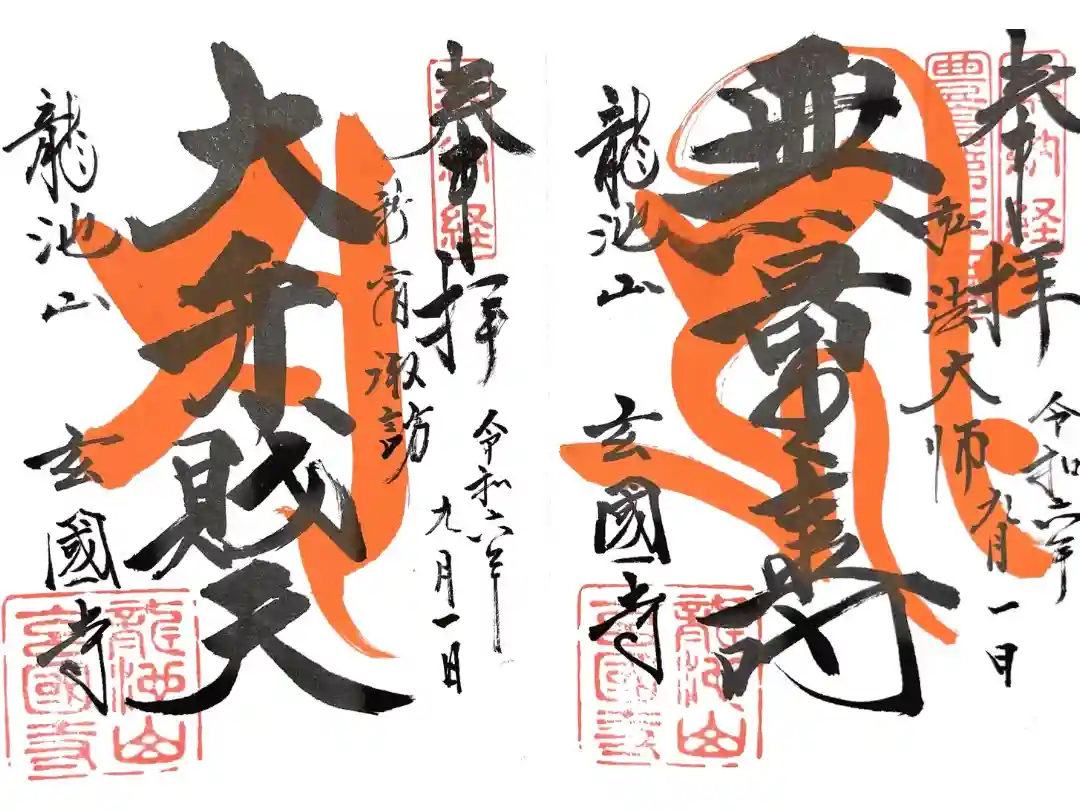 奉拝
奉納経
令和六年
九月一日
新宿諏訪
大弁財天
龍池山
玄國寺
龍池山
玄國寺
奉拝
奉納経
令和六年
九月一日
弘法大師
無量壽
龍池山
玄國寺
龍池山
玄國寺